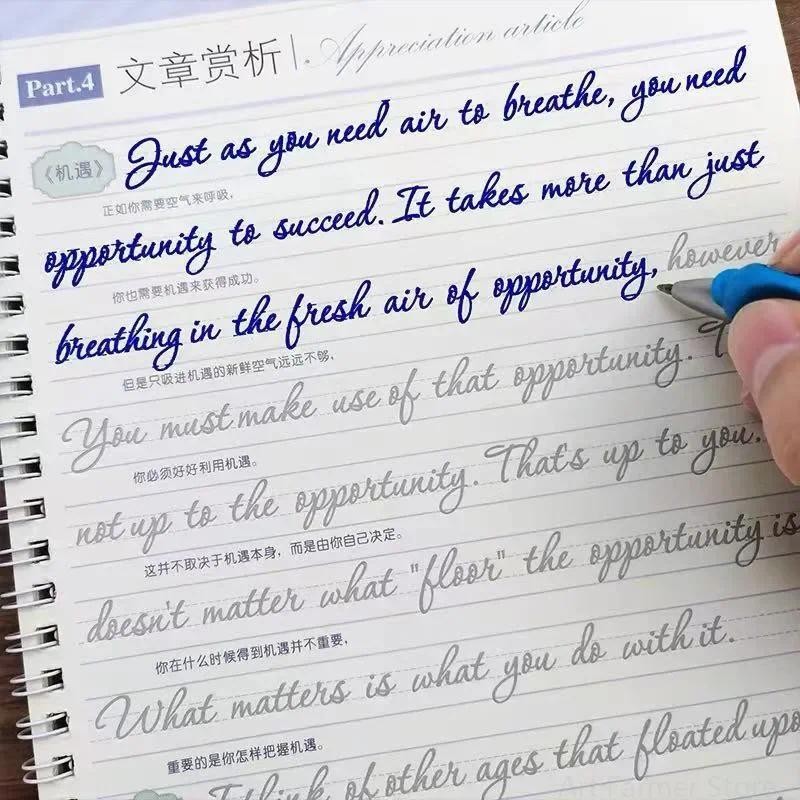 Part.4 文章赏析 Appreciation article
《机遇》 Just as you need air to breathe, you need
正如你需要空气来呼吸,
opportunity to succeed. It takes more than just
你也需要机遇来获得成功。
breathing in the fresh air of opportunity, however
但是只吸进机遇的新鲜空气远远不够,
You must make use of that opportunity. T
你必须好好利用机遇。
not up to the opportunity. That's up to you.
这并不取决于机遇本身，而是由你自己决定。
doesn't matter what "floor" the opportunity is
你在什么时候得到机遇并不重要,
What matters is what you do with it.
重要的是你怎样把握机遇。
think of other ages that floated upo
Art Farmer Store